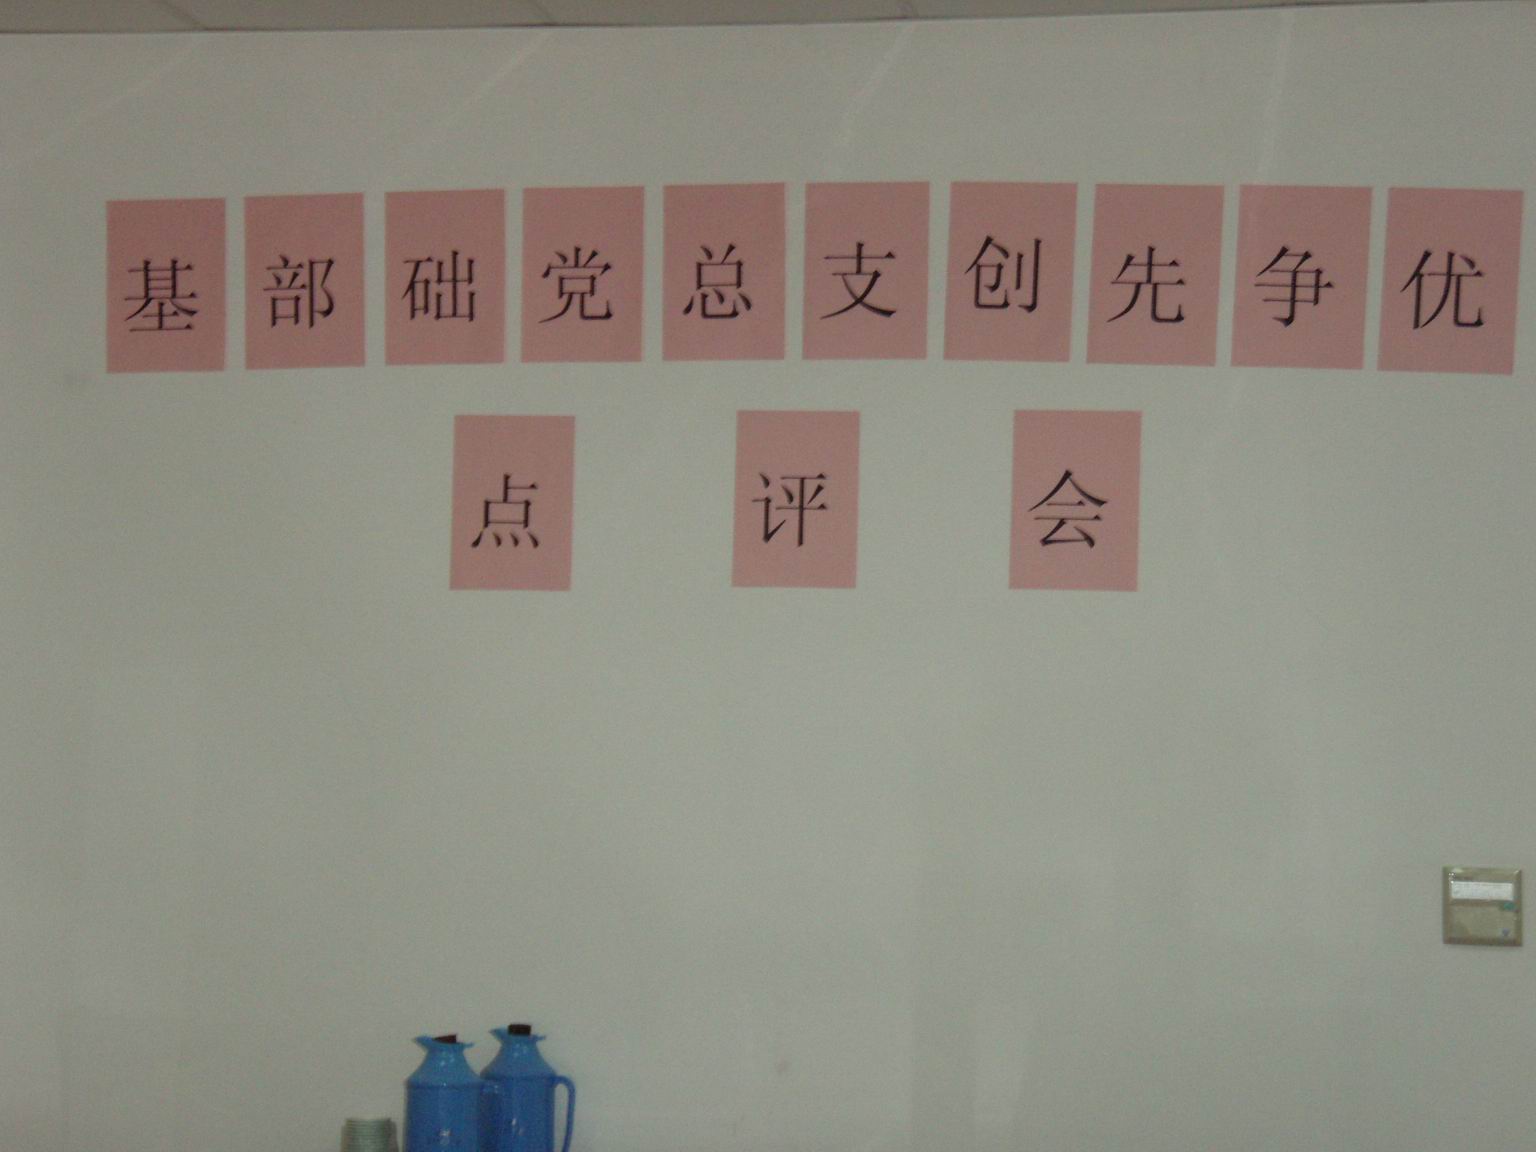 基部础党总支创先争优
点评会